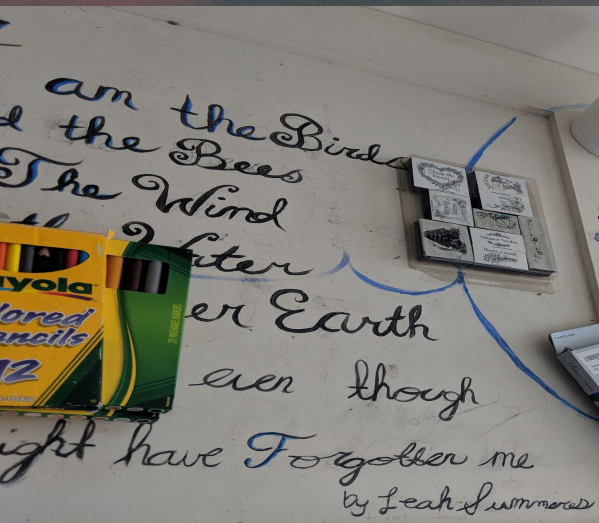 am the Birds
d the Bees
The Wind
the Water
er Earth
even though
ight have Forgotten me
by Leah Summeres
ayola
olored
encils
12
20 WASHABLE MARKERS